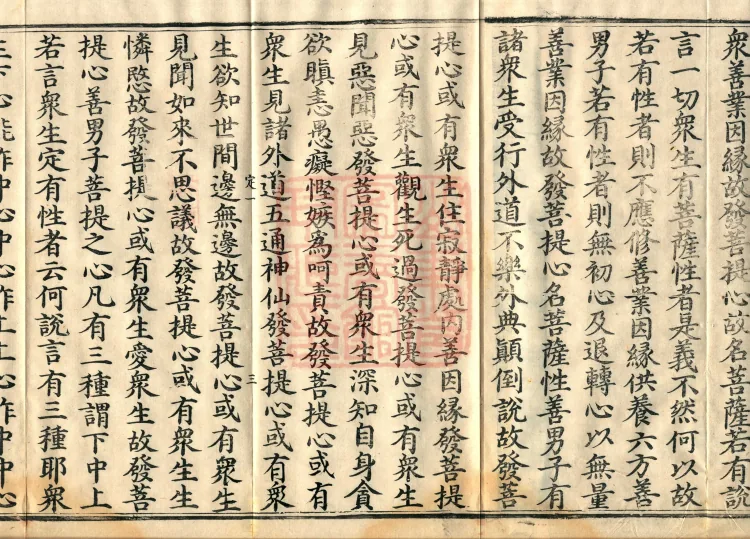 衆善業因緣故發菩提心故名菩薩若有說
言一切衆生有菩薩性者是義不然何以故
若有性者則不應修善業因緣供養六方善
男子若有性者則無初心及退轉心以無量
善業因緣故發菩提心名菩薩性善男子有
諸衆生受行外道不樂外典顛倒說故發菩
提心或有衆生住寂靜處內善因緣發菩提
心或有衆生觀生死過發菩提心或有衆生
見惡聞惡發菩提心或有衆生深知自身貪
欲瞋恚愚癡慳嫉為呵責故發菩提心或有
衆生見諸外道五通神仙發菩提心或有衆
定一
三
生欲知世間邊無邊故發菩提心或有衆生
見聞如來不思議故發菩提心或有衆生生
憐愍故發菩提心或有衆生愛衆生故發菩
提心善男子菩提之心凡有三種謂下中上
若言衆生定有性者云何說言有三種耶衆
生下心能作中心中心作上上心作中中心